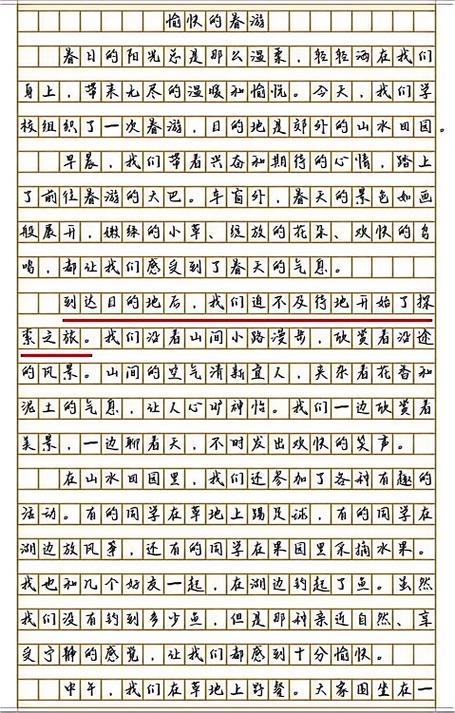 愉快的春游
春日的阳光总是那么温柔，轻轻洒在我们
身上，带来无尽的温暖和愉悦。今天，我们学
校组织了一次春游，目的地是郊外的山水田园。
早晨，我们带着兴奋和期待的心情，踏上
了前往春游的大巴。车窗外，春天的景色如画
般展开，嫩绿的小草、绽放的花朵、欢快的鸟
鸣，都让我们感受到了春天的气息。
到达目的地后，我们迫不及待地开始了探
索之旅。我们沿着山间小路漫步，欣赏着沿途
的风景。山间的空气清新宜人，夹杂着花香和
泥土的气息，让人心旷神怡。我们一边欣赏着
美景，一边聊着天，不时发出欢快的笑声。
在山水田园里，我们还参加了各种有趣的
活动。有的同学在草地上踢足球，有的同学在
湖边放风筝，还有的同学在果园里采摘水果。
我也和几个好友一起，在湖边钓起了鱼。虽然
我们没有钓到多少鱼，但是那种亲近自然、享
受宁静的感觉，让我们都感到十分愉快。
中午，我们在草地上野餐。大家围坐在一